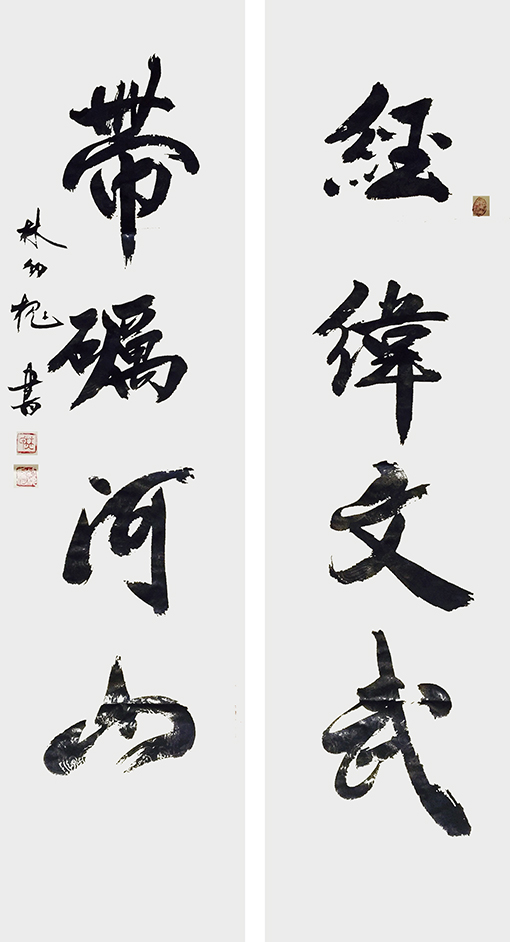 經緯文武
帶礪河山
林幼槐書